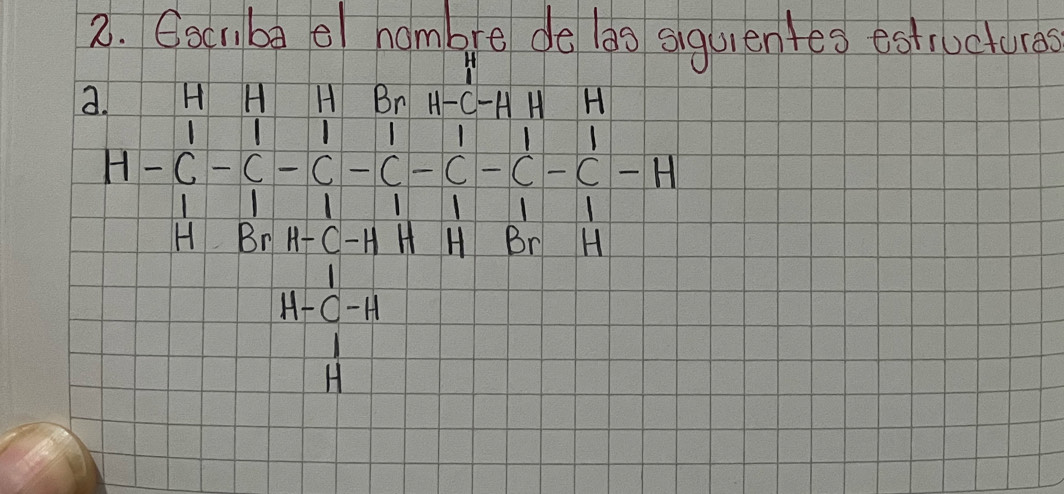 2. Escriba el nombre de las siguientes estructuras
H
a. H H H Br H-C-H H H
| | | | | | |
H - C - C - C - C - C - C - C - H
| | | | | | |
H Br H-C-H H H Br H
|
H-C-H
|
H